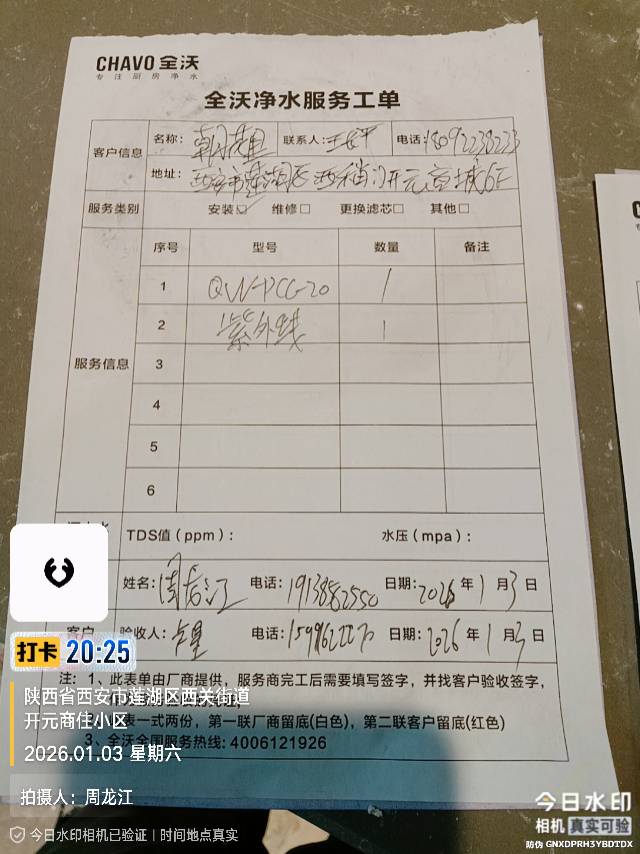 CHAVO 全沃
专注厨房净水
全沃净水服务工单
客户信息 名称： 联系人： 电话：18092238223
地址：西安市莲湖区西稍门开元商城6F
服务类别 安装☑ 维修□ 更换滤芯□ 其他□
服务信息
序号 型号 数量 备注
1 QW-PCG-20 1
2 紫外线 1
3
4
5
6
TDS值（ppm）： 水压（mpa）：
姓名：周龙江 电话： 日期：2026年1月3日
客户 验收人： 电话： 日期：2026年1月3日
注：1、此表单由厂商提供，服务商完工后需要填写签字，并找客户验收签字，
表一式两份，第一联厂商留底(白色)，第二联客户留底(红色)
3、全沃全国服务热线：4006121926
打卡 20:25
陕西省西安市莲湖区西关街道
开元商住小区
2026.01.03 星期六
拍摄人：周龙江
今日水印相机已验证 | 时间地点真实
今日水印
相机 真实可验
防伪 GNXDPRH3YBDTDX